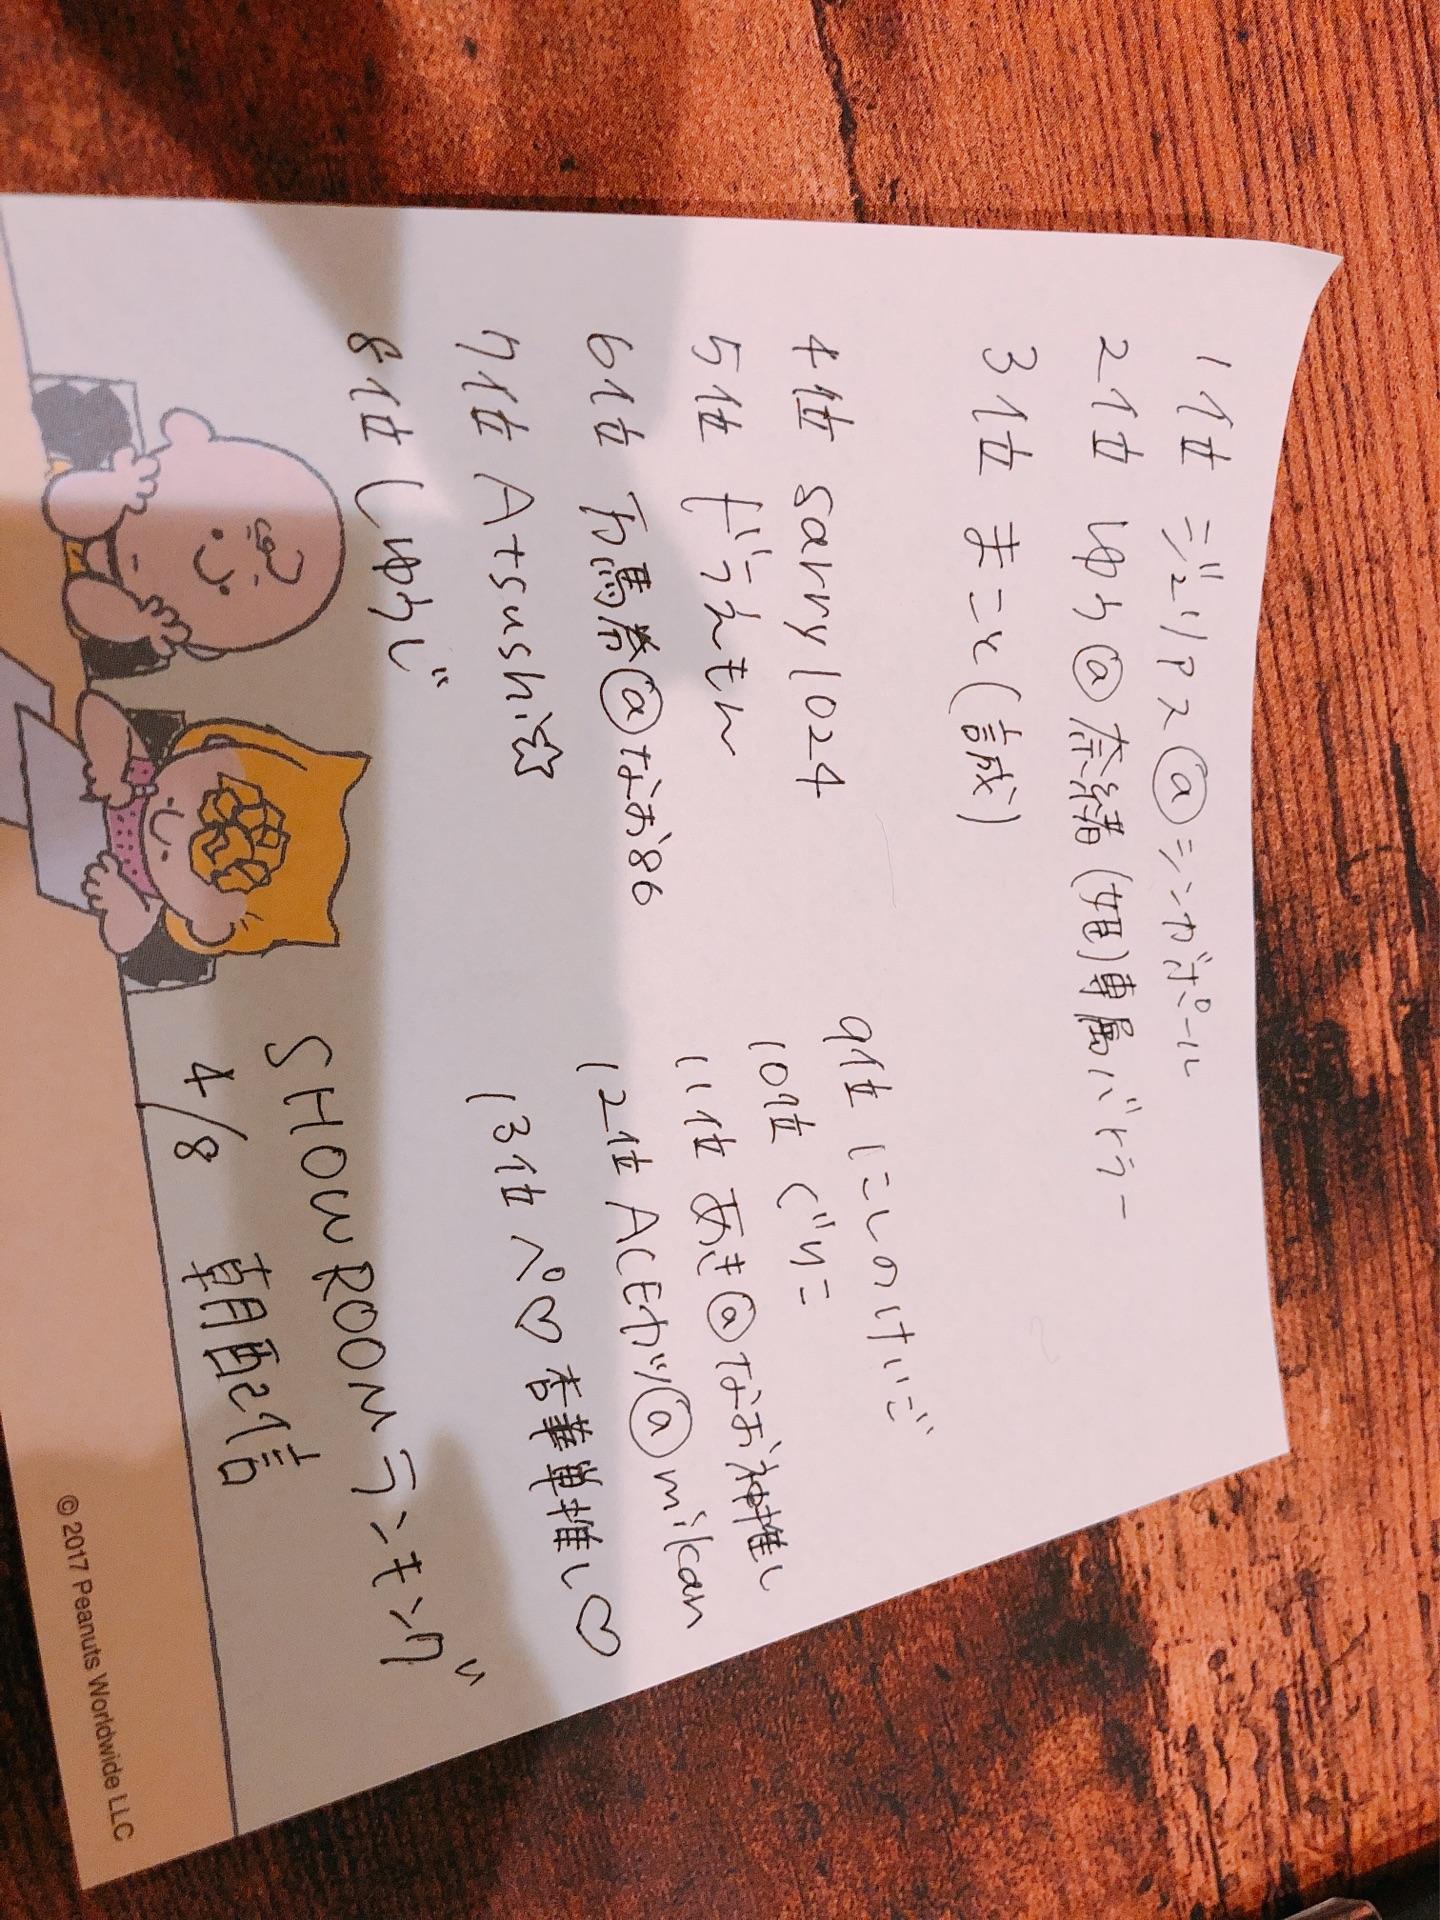 1位 ジュリアス@シンガポール
2位 ゆう@奈緒(姫)専属バトラー
3位 まこと(誠)
4位 sarry1024
5位 ドラえもん
6位 万馬券@なお86
7位 Atsushi☆
8位 しゅうじ
9位 にしのけいご
10位 ぐりこ
11位 あき@なお神推し
12位 ACEカツ@mikan
13位 ペ♡杏華単推し♡
SHOWROOMランキング
4/8 朝配信
© 2017 Peanuts Worldwide LLC